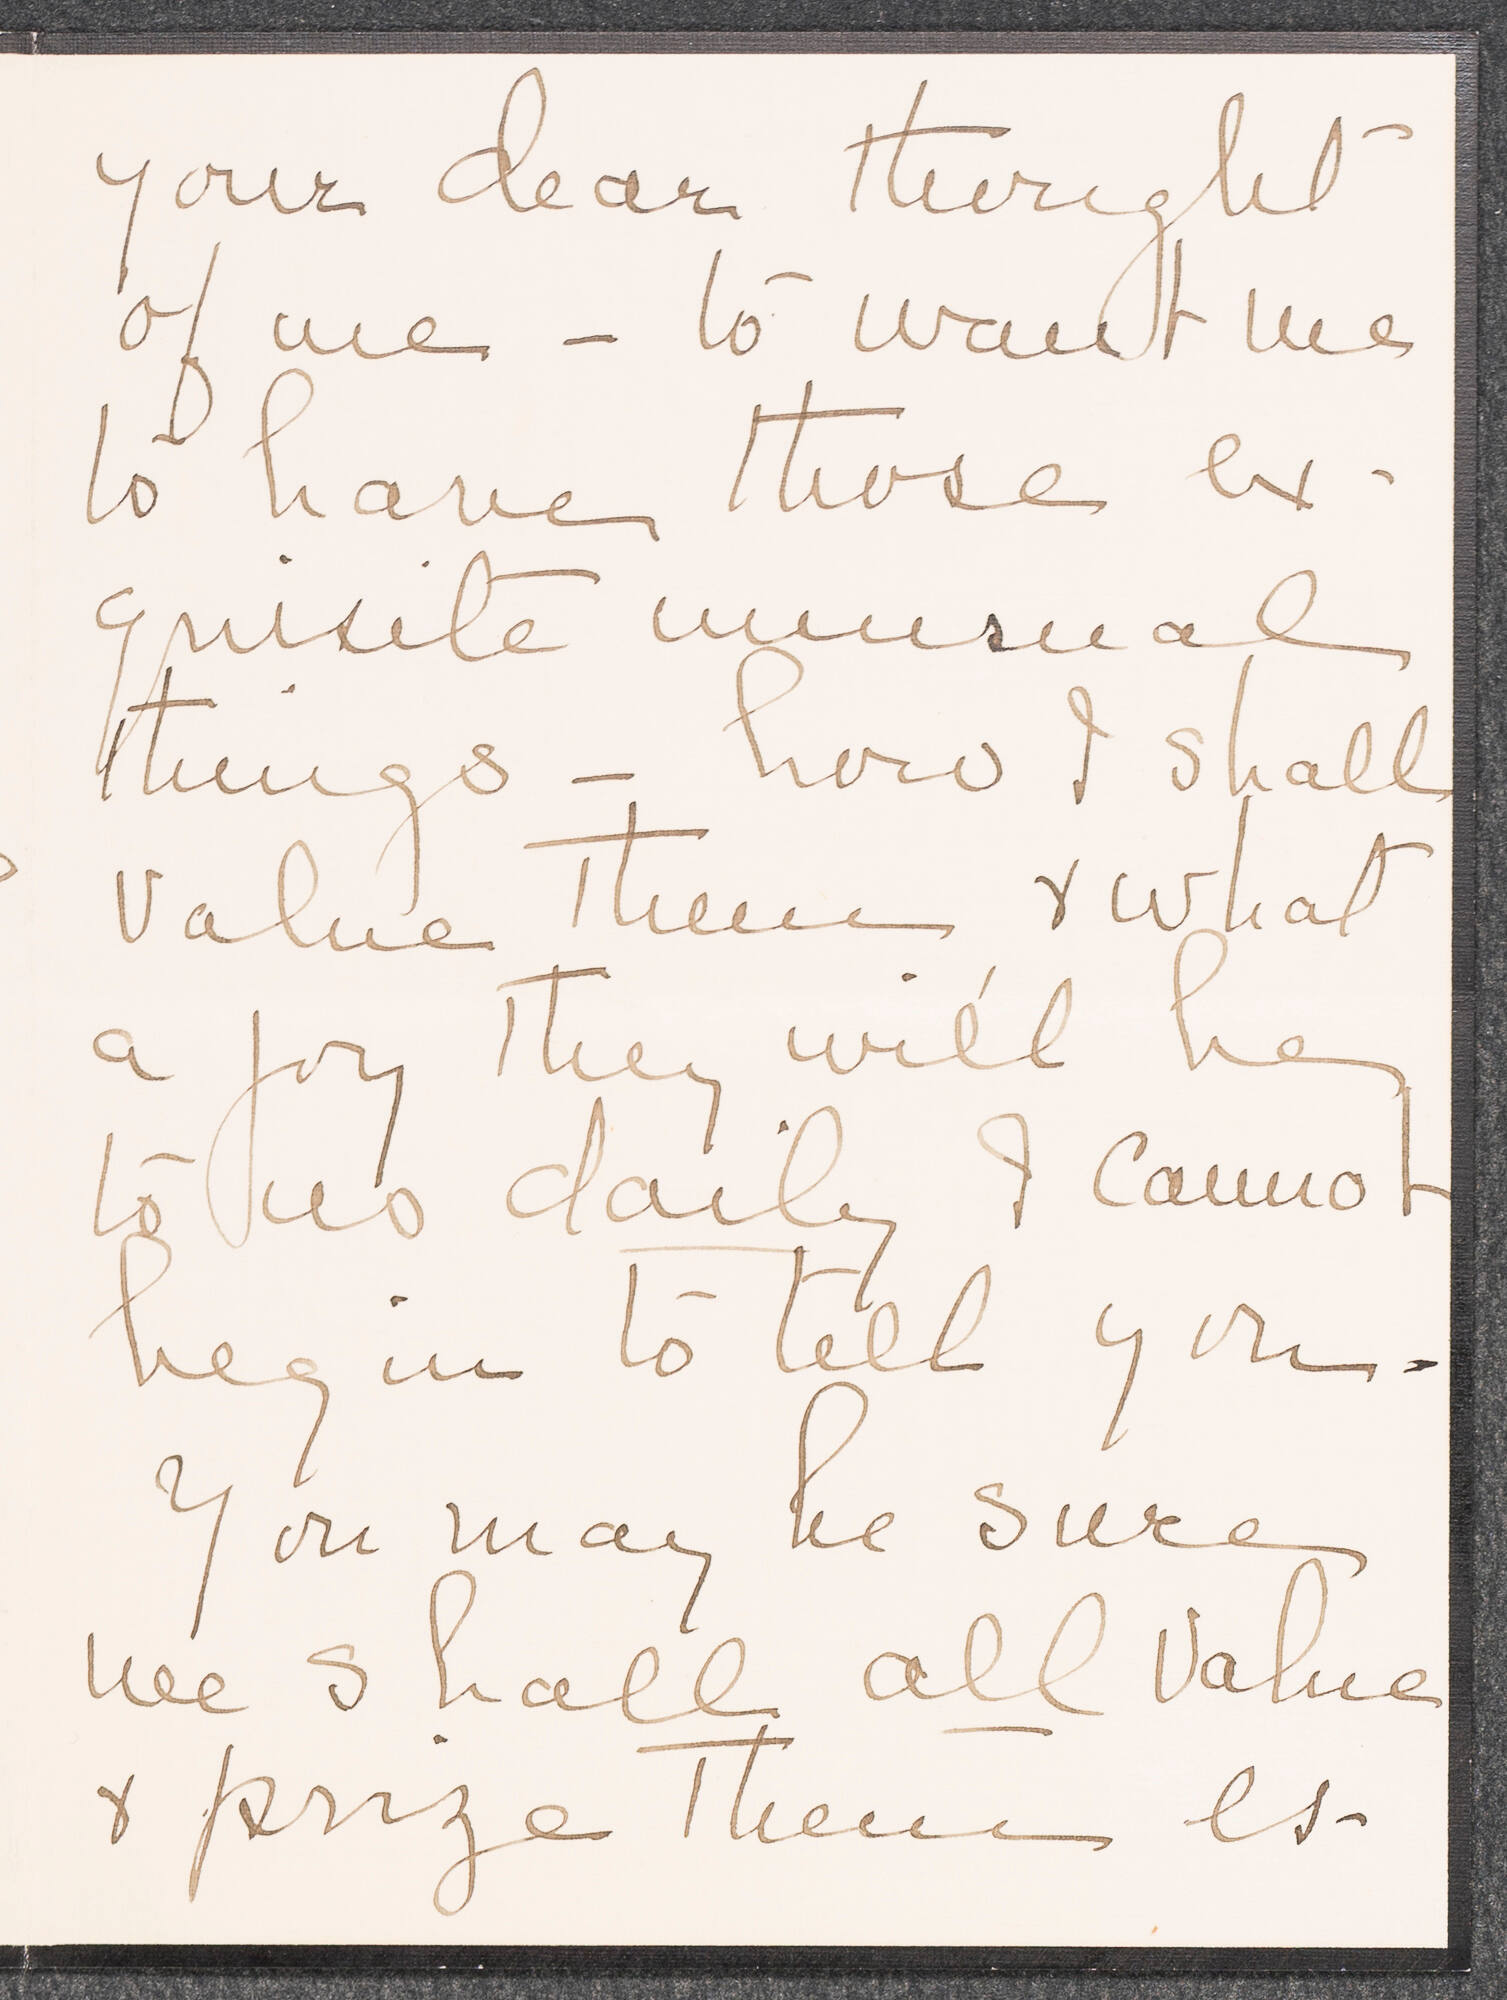 your dear thought
of me - to want me
to have those ex-
quisite unusual
things - how I shall
value them & what
a joy they will be
to us daily I cannot
begin to tell you.
You may be sure
we shall all value
& prize them es-